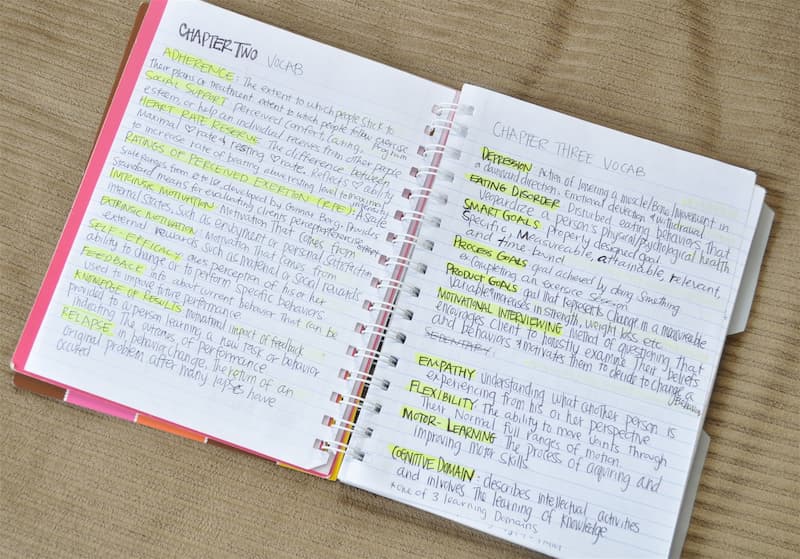 CHAPTER TWO VOCAB
ADHERENCE: The extent to which people stick to
their plans or treatment extent to which people follow exercise
SOCIAL SUPPORT perceived comfort, caring, program
esteem or help an individual receives from other people
HEART RATE RESERVE The difference between
maximal ♡ rate & resting ♡ rate. Reflects ♡ ability
to increase rate of beating above resting level to maximal
RATINGS OF PERCEIVED EXERTION (RPE): A scale
Scale ranges from to be developed by Gunnar Borg. Provides
standard means for evaluating clients perception exercise effort
INTRINSIC MOTIVATION Motivation that comes from
internal states, such as enjoyment or personal satisfaction
EXTRINSIC MOTIVATION Motivation that comes from
external rewards such as material or social rewards
SELF-EFFICACY ones perception of his or her
ability to change or to perform specific behaviors.
FEEDBACK info about current behavior that can be
used to improve future performance
KNOWLEDGE OF RESULTS motivational impact of feedback
provided to a person learning a new task or behavior
indicating the outcomes of performance
RELAPSE in behavior change, the return of an
original problem after many lapses have
occured
CHAPTER THREE VOCAB
DEPRESSION Action of lowering a muscle/Bone/movement in
a downward direction. Emotional dejection & withdrawal
EATING DISORDER Disturbed eating behaviors that
jeopardize a person's physical/psychological health
SMART GOALS A properly designed goal
Specific, Measureable, attainable, relevant,
and time bound
PROCESS GOALS goal achieved by doing something
ex completing an exercise session
PRODUCT GOALS goal that represents change in a measureable
variable increases in strength, weight loss etc.
MOTIVATIONAL INTERVIEWING method of questioning that
encourages client to honestly examine their beliefs
and behaviors & motivates them to decide to change a
behavior
SEDENTARY:
EMPATHY understanding what another person is
experiencing from his or her perspective
FLEXIBILITY The ability to move joints through
their normal full ranges of motion.
MOTOR-LEARNING The process of acquiring and
improving motor skills.
COGNITIVE DOMAIN: describes intellectual activities
and inlvoves the learning of knowledge
*one of 3 learning Domains